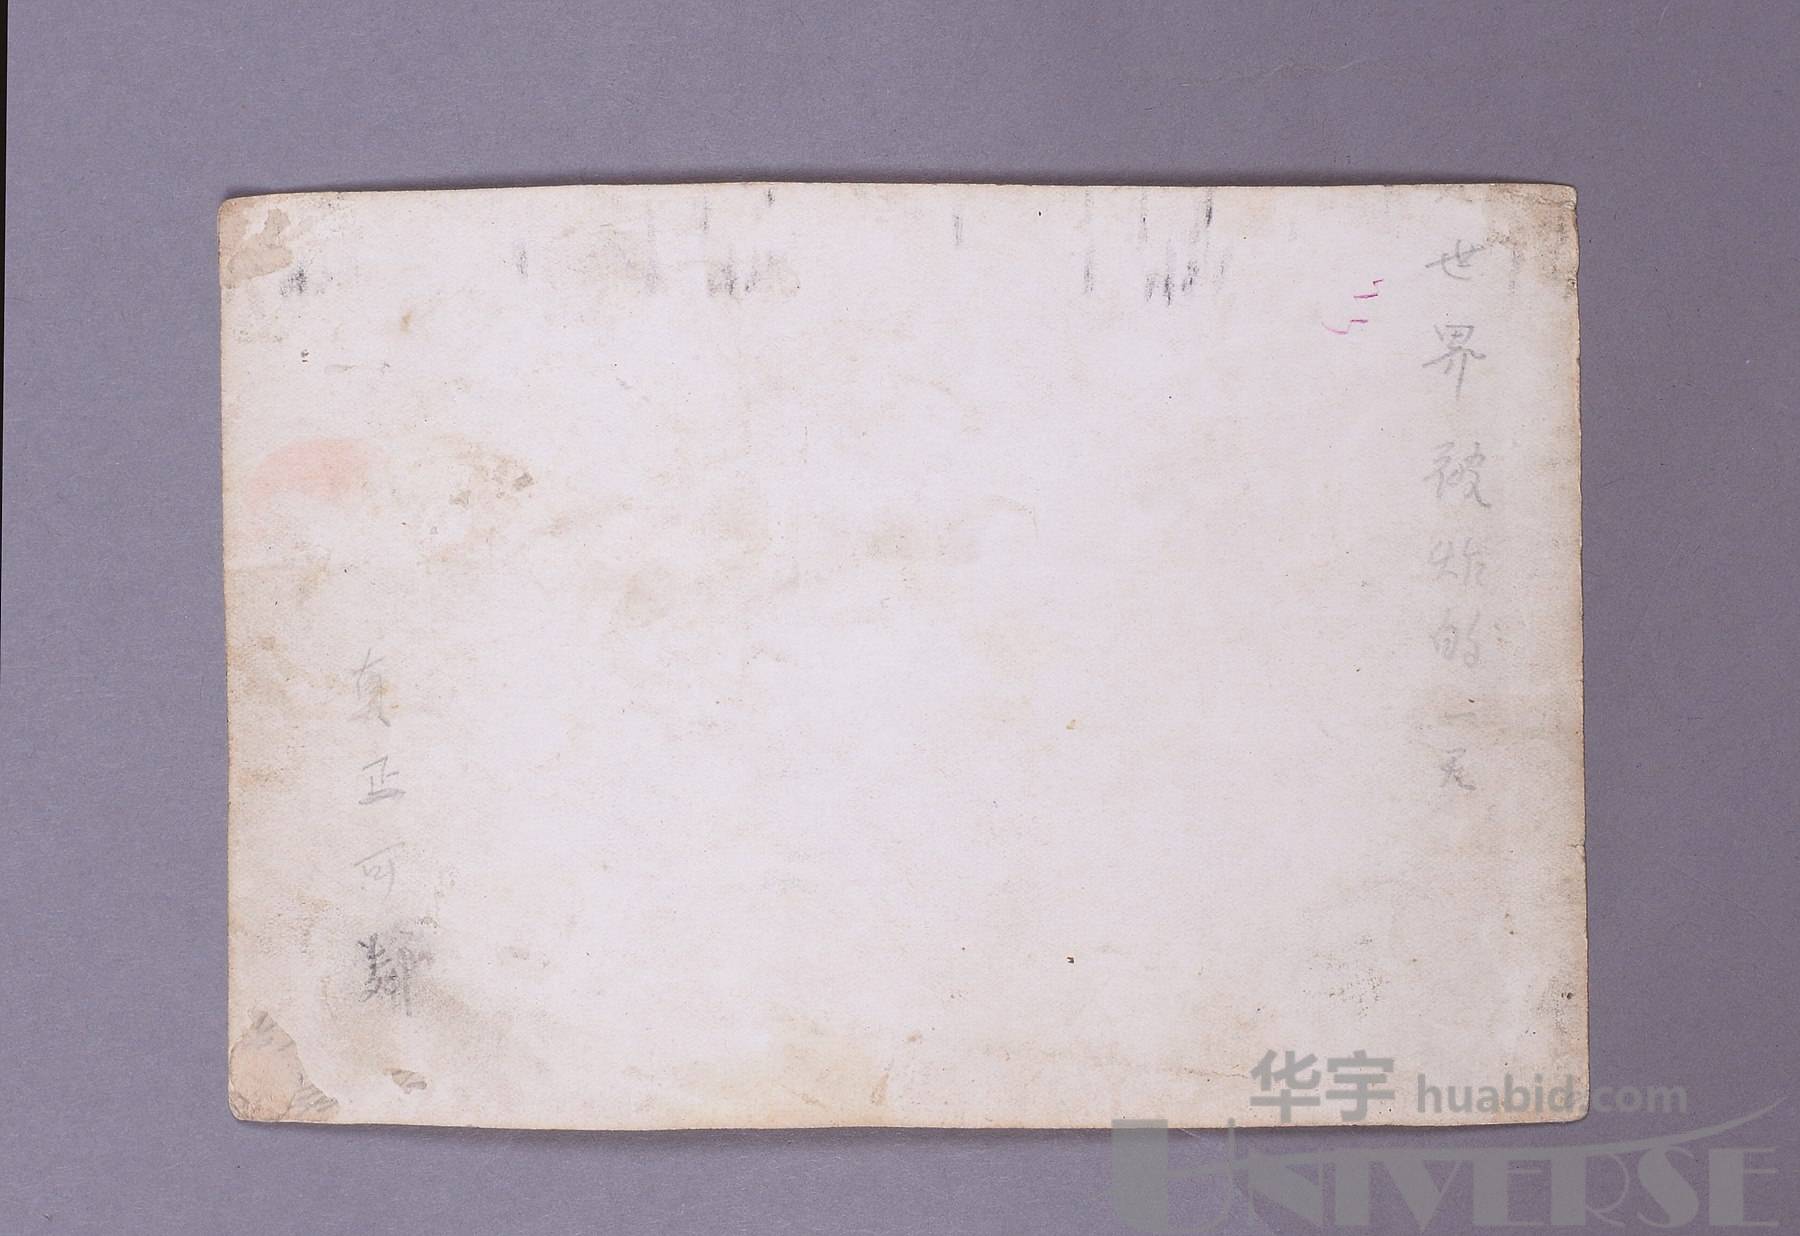 世界被炸的一晃
真正可鄰
45
华宇 huabid.com
UNIVERSE